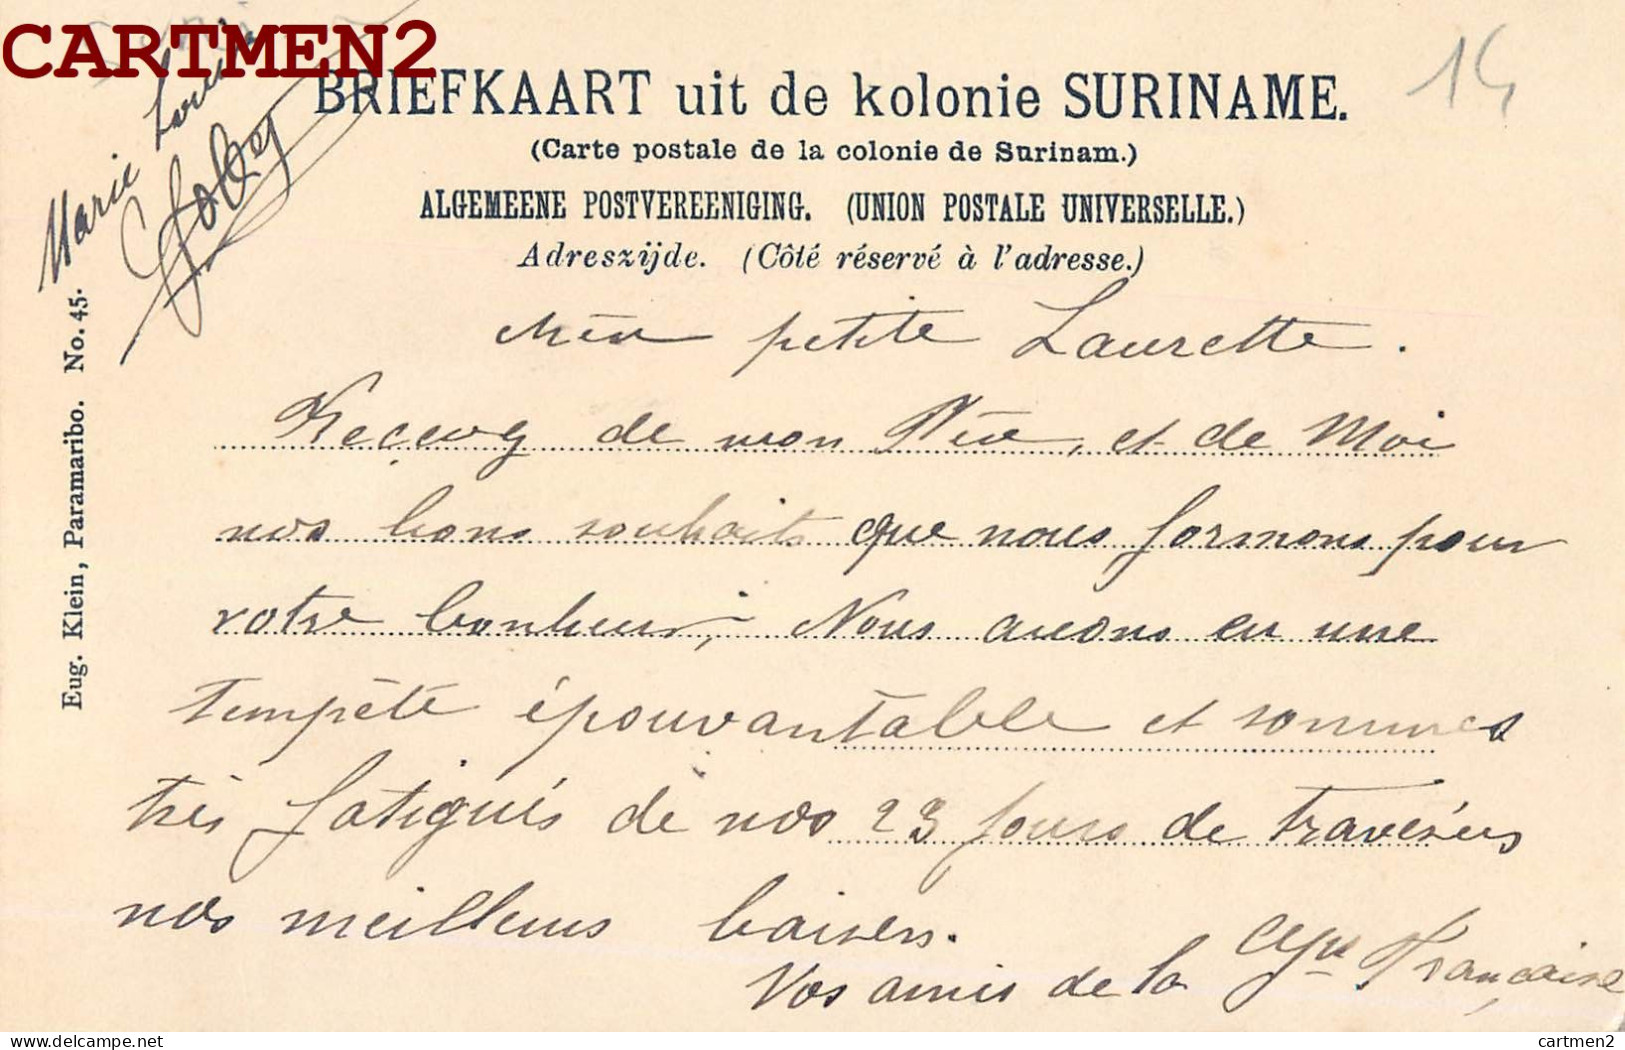 CARTMEN2
14
BRIEFKAART uit de kolonie SURINAME.
(Carte postale de la colonie de Surinam.)
ALGEMEENE POSTVEREENIGING. (UNION POSTALE UNIVERSELLE.)
Adreszijde. (Côté réservé à l'adresse.)
Marie Louise
Eug. Klein, Paramaribo. No. 45.
petite Laurette.
Recevez de mon Père, et de Moi
nos bons souhaits que nous formons pour
votre bonheur; Nous avons eu une
tempête épouvantable et sommes
très fatigués de nos 23 jours de traversées
nos meilleurs baisers.
Vos amis de la Gyne Française
cartmen2